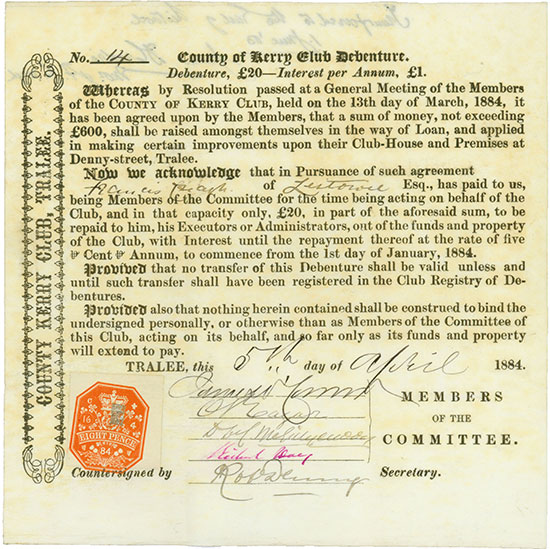 No. 14 County of Kerry Club Debenture.
Debenture, £20—Interest per Annum, £1.
Whereas by Resolution passed at a General Meeting of the Members
of the COUNTY OF KERRY CLUB, held on the 13th day of March, 1884, it
has been agreed upon by the Members, that a sum of money, not exceeding
£600, shall be raised amongst themselves in the way of Loan, and applied
in making certain improvements upon their Club-House and Premises at
Denny-street, Tralee.
Now we acknowledge that in Pursuance of such agreement
Francis of Listowel Esq., has paid to us,
being Members of the Committee for the time being acting on behalf of the
Club, and in that capacity only, £20, in part of the aforesaid sum, to be
repaid to him, his Executors or Administrators, out of the funds and property
of the Club, with Interest until the repayment thereof at the rate of five
⅌ Cent ⅌ Annum, to commence from the 1st day of January, 1884.
Provided that no transfer of this Debenture shall be valid unless and
until such transfer shall have been registered in the Club Registry of De-
bentures.
Provided also that nothing herein contained shall be construed to bind the
undersigned personally, or otherwise than as Members of the Committee of
this Club, acting on its behalf, and so far only as its funds and property
will extend to pay.
TRALEE, this 5th day of April 1884.
MEMBERS
OF THE
COMMITTEE.
Countersigned by Secretary.
COUNTY KERRY CLUB, TRALEE.
EIGHT PENCE
84